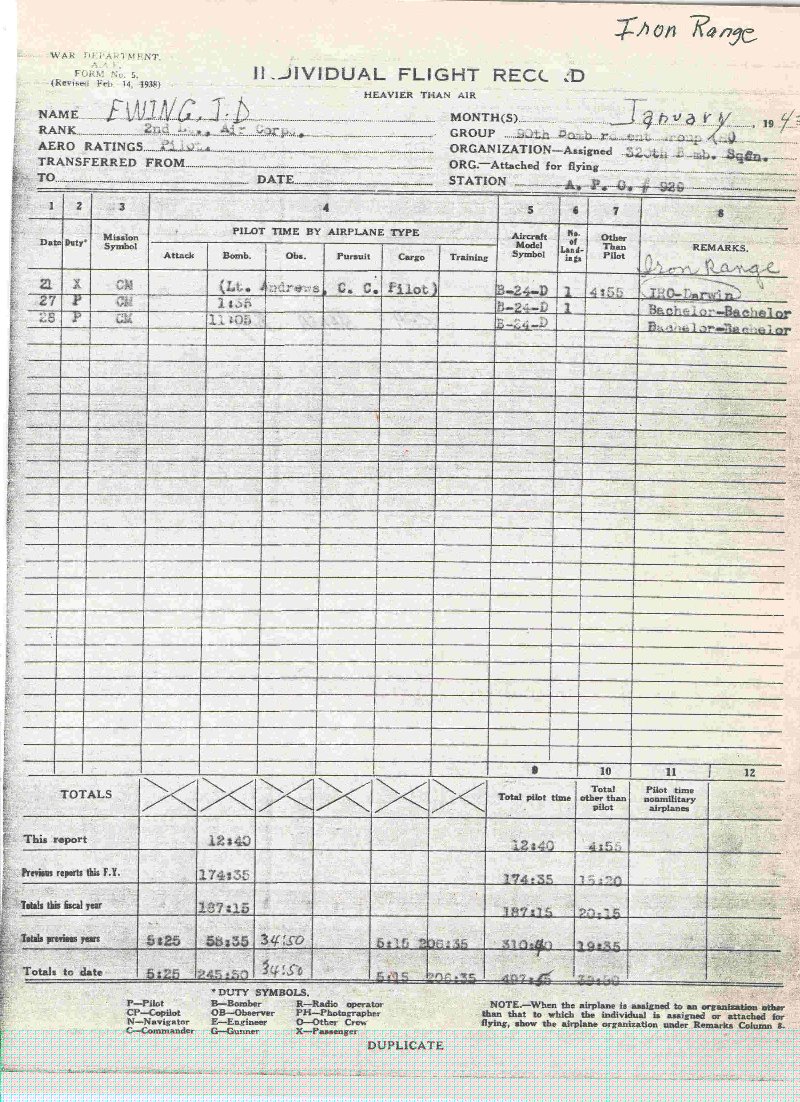 Iron Range
WAR DEPARTMENT
A.A.F.
FORM No. 5,
(Revised Feb. 14, 1938)
INDIVIDUAL FLIGHT RECORD
HEAVIER THAN AIR
NAME EWING, J. D MONTH(S) January, 194
RANK 2nd Lt., Air Corps. GROUP 90th Bombardment Group
AERO RATINGS Pilot. ORGANIZATION—Assigned Bomb. Sqdn.
TRANSFERRED FROM ORG.—Attached for flying
TO DATE STATION A. P. O. # 929
1 2 3 4 5 6 7 8
Date Duty* Mission Symbol PILOT TIME BY AIRPLANE TYPE Aircraft Model Symbol No. of Landings Other Than Pilot REMARKS.
Attack Bomb. Obs. Pursuit Cargo Training Iron Range
21 X CM (Lt. Andrews, C. C. Pilot) B-24-D 1 4:55 IRO-Darwin
27 P CM 1:35 B-24-D 1 Bachelor-Bachelor
28 P CM 11:05 B-24-D Bachelor-Bachelor
9 10 11 12
TOTALS Total pilot time Total other than pilot Pilot time nonmilitary airplanes
This report 12:40 12:40 4:55
Previous reports this F.Y. 174:35 174:35 15:20
Totals this fiscal year 187:15 187:15 20:15
Totals previous years 5:25 58:35 34:50 5:15 206:35 310:40 19:35
Totals to date 5:25 245:50 34:50 5:15 206:35
*DUTY SYMBOLS.
P—Pilot B—Bomber R—Radio operator
CP—Copilot OB—Observer PH—Photographer
N—Navigator E—Engineer O—Other Crew
C—Commander G—Gunner X—Passenger
NOTE.—When the airplane is assigned to an organization other
than that to which the individual is assigned or attached for
flying, show the airplane organization under Remarks Column 8.
DUPLICATE